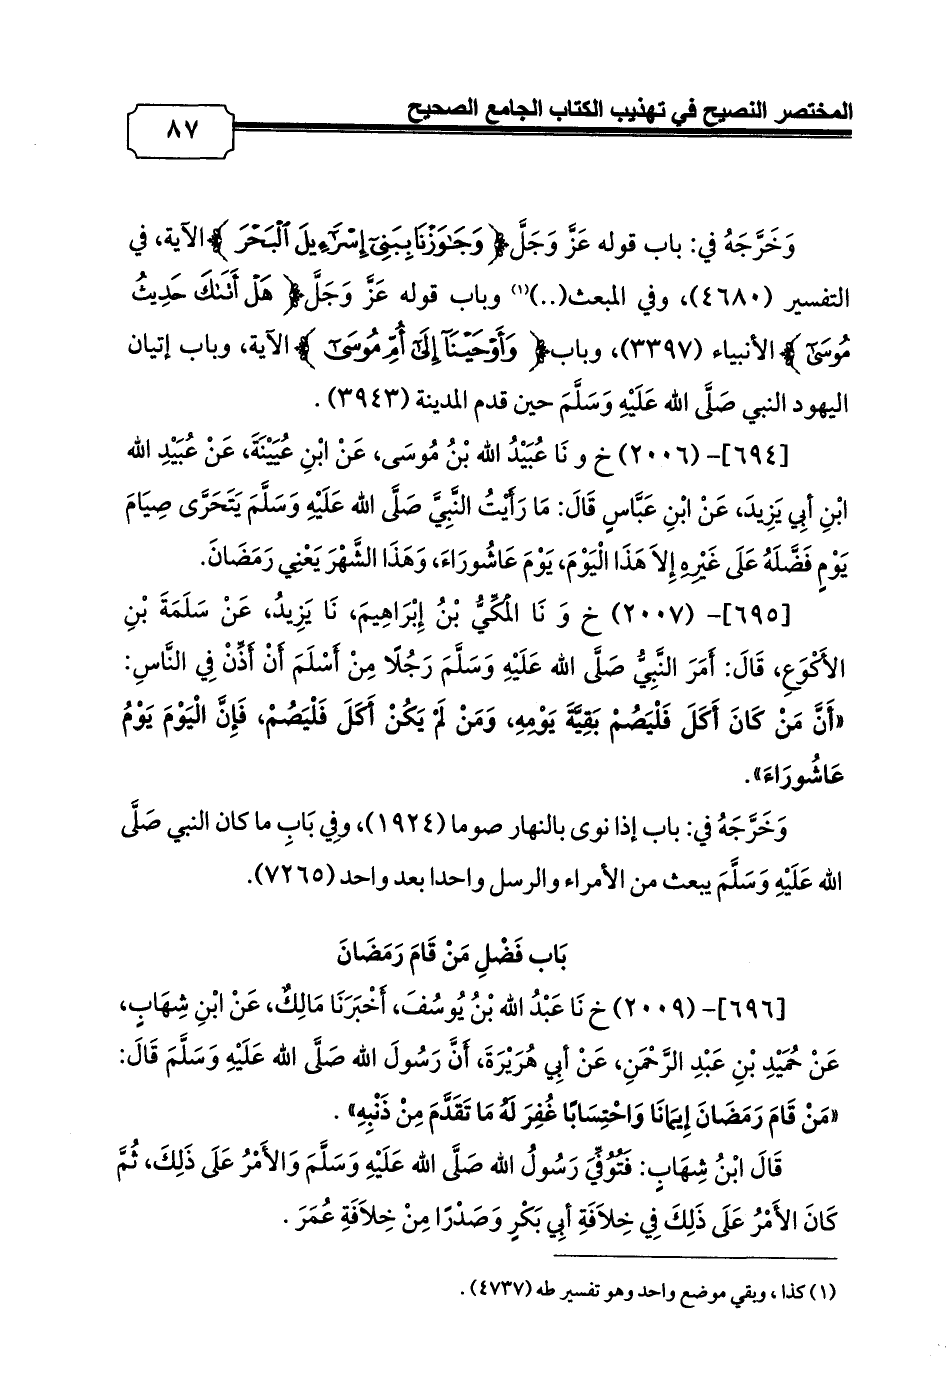 المختصر النصيح في تهذيب الكتاب الجامع الصحيح
٨٧
وَخَرَّجَهُ في: باب قوله عَزَّ وَجَلَّ ﴿ وَجَٰوَزْنَا بِبَنِىٓ إِسْرَٰٓءِيلَ ٱلْبَحْرَ ﴾ الآية، في
التفسير (٤٦٨٠)، وفي المبعث(..)(١) وباب قوله عَزَّ وَجَلَّ ﴿ هَلْ أَتَىٰكَ حَدِيثُ
مُوسَىٰٓ ﴾ الأنبياء (٣٣٩٧)، وباب ﴿ وَأَوْحَيْنَآ إِلَىٰٓ أُمِّ مُوسَىٰٓ ﴾ الآية، وباب إتيان
اليهود النبي صَلَّى الله عَلَيْهِ وَسَلَّمَ حين قدم المدينة (٣٩٤٣) .
[٦٩٤]- (٢٠٠٦) خ و نَا عُبَيْدُ الله بْنُ مُوسَى، عَنْ ابْنِ عُيَيْنَةَ، عَنْ عُبَيْدِ الله
ابْنِ أبِي يَزِيدَ، عَنْ ابْنِ عَبَّاسٍ قَالَ: مَا رَأَيْتُ النَّبِيَّ صَلَّى الله عَلَيْهِ وَسَلَّمَ يَتَحَرَّى صِيَامَ
يَوْمٍ فَضَّلَهُ عَلَى غَيْرِهِ إِلاَ هَذَا الْيَوْمَ، يَوْمَ عَاشُورَاءَ، وَهَذَا الشَّهْرَ يَعْنِي رَمَضَانَ.
[٦٩٥]- (٢٠٠٧) خ و نَا الْمَكِّيُّ بْنُ إِبْرَاهِيمَ، نَا يَزِيدُ، عَنْ سَلَمَةَ بْنِ
الأَكْوَعِ، قَالَ: أَمَرَ النَّبِيُّ صَلَّى الله عَلَيْهِ وَسَلَّمَ رَجُلًا مِنْ أَسْلَمَ أَنْ أَذِّنْ فِي النَّاسِ:
«أَنَّ مَنْ كَانَ أَكَلَ فَلْيَصُمْ بَقِيَّةَ يَوْمِهِ، وَمَنْ لَمْ يَكُنْ أَكَلَ فَلْيَصُمْ، فَإِنَّ الْيَوْمَ يَوْمُ
عَاشُورَاءَ».
وَخَرَّجَهُ فِي: باب إذا نوى بالنهار صوما (١٩٢٤)، وفِي بَابِ ما كان النبي صَلَّى
الله عَلَيْهِ وَسَلَّمَ يبعث من الأمراء والرسل واحدا بعد واحد (٧٢٦٥).
بَاب فَضْلِ مَنْ قَامَ رَمَضَانَ
[٦٩٦]- (٢٠٠٩) خ نَا عَبْدُ الله بْنُ يُوسُفَ، أَخْبَرَنَا مَالِكٌ، عَنْ ابْنِ شِهَابٍ،
عَنْ حُمَيْدِ بْنِ عَبْدِ الرَّحْمَنِ، عَنْ أبِي هُرَيْرَةَ، أَنَّ رَسُولَ الله صَلَّى الله عَلَيْهِ وَسَلَّمَ قَالَ:
«مَنْ قَامَ رَمَضَانَ إِيمَانًا وَاحْتِسَابًا غُفِرَ لَهُ مَا تَقَدَّمَ مِنْ ذَنْبِهِ» .
قَالَ ابْنُ شِهَابٍ: فَتُوُفِّيَ رَسُولُ الله صَلَّى الله عَلَيْهِ وَسَلَّمَ وَالأَمْرُ عَلَى ذَلِكَ، ثُمَّ
كَانَ الأَمْرُ عَلَى ذَلِكَ فِي خِلاَفَةِ أبِي بَكْرٍ وَصَدْرًا مِنْ خِلاَفَةِ عُمَرَ .
(١) كذا ، وبقي موضع واحد وهو تفسير طه (٤٧٣٧) .